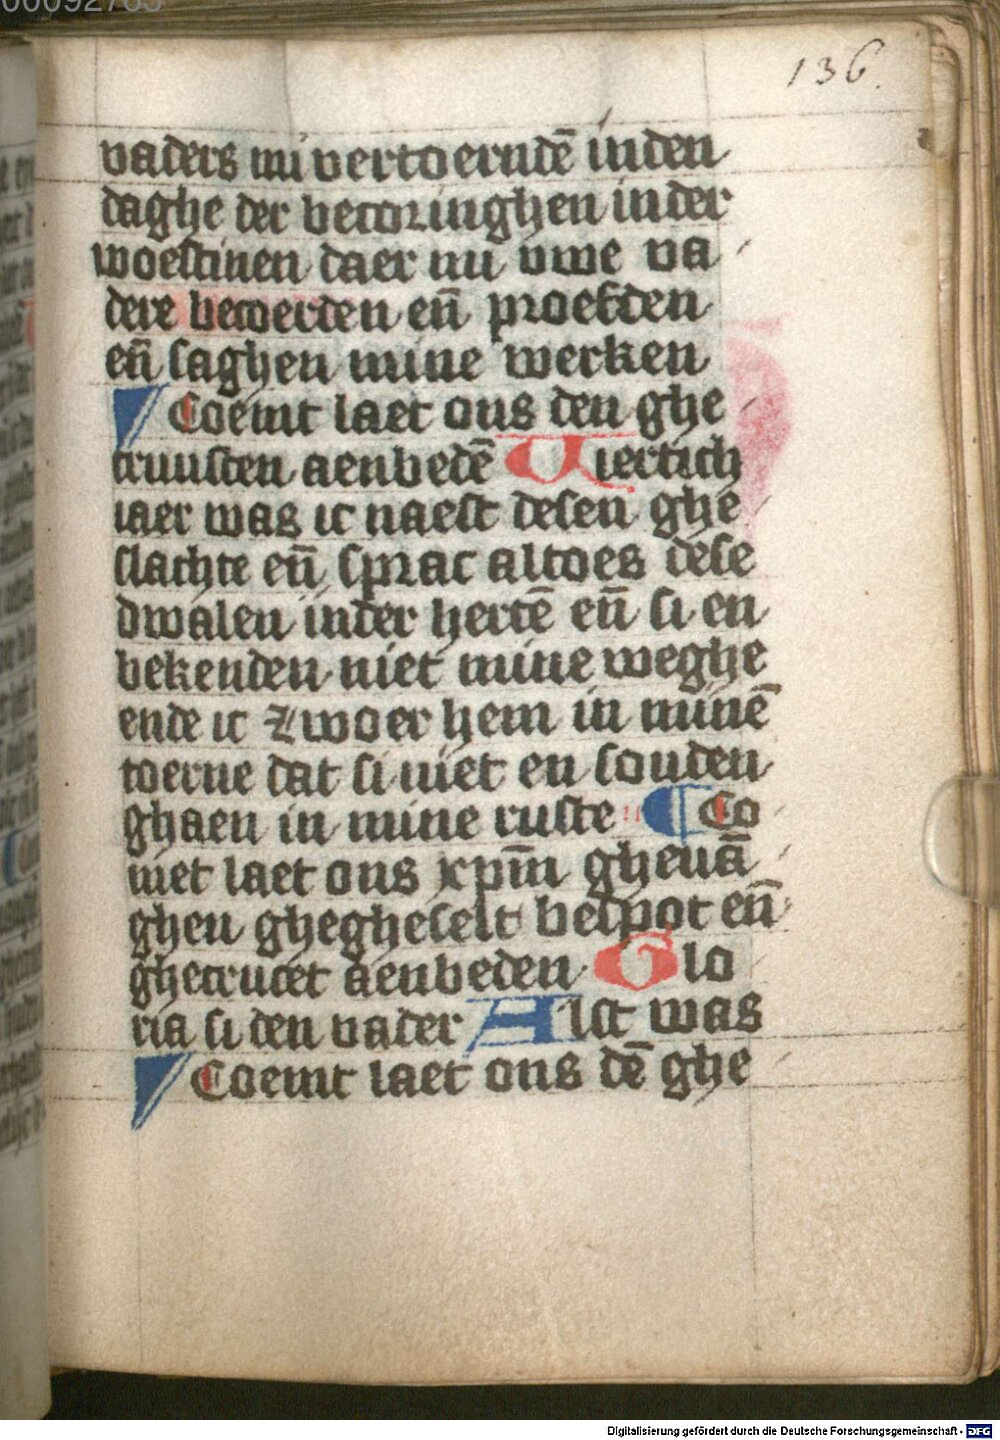 00092785
136.
vaders mi vertoerndē inden
daghe der becoringhen inder
woestinen daer mi uwe va
dere becoerden en̄ proefden
en̄ saghen mine werken
Coemt laet ons den ghe
truusten aenbedē Viertich
iaer was ic naest desen ghe
slachte en̄ sprac altoes dese
dwalen inder hertē en̄ si en
bekenden niet mine weghe
ende ic zwoer hem in minē
toerne dat si niet en souden
ghaen in mine ruste Co
met laet ons xp̄m gheuā
ghen ghegheselt bespot en̄
ghecrucet aenbeden Glo
ria si den vader Alst was
Coemt laet ons dē ghe
Digitalisierung gefördert durch die Deutsche Forschungsgemeinschaft - DFG